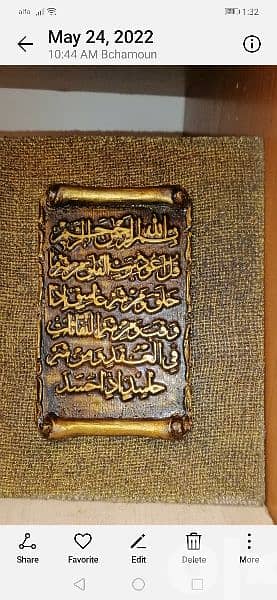 alfa
1:32
May 24, 2022
10:44 AM Bchamoun
بسم الله الرحمن الرحيم
قل اعوذ برب الفلق من شر ما
خلق ومن شر غاسق اذا
وقب ومن شر النفاثات
في العقد ومن شر
حاسد اذا حسد
Share
Favorite
Edit
Delete
More